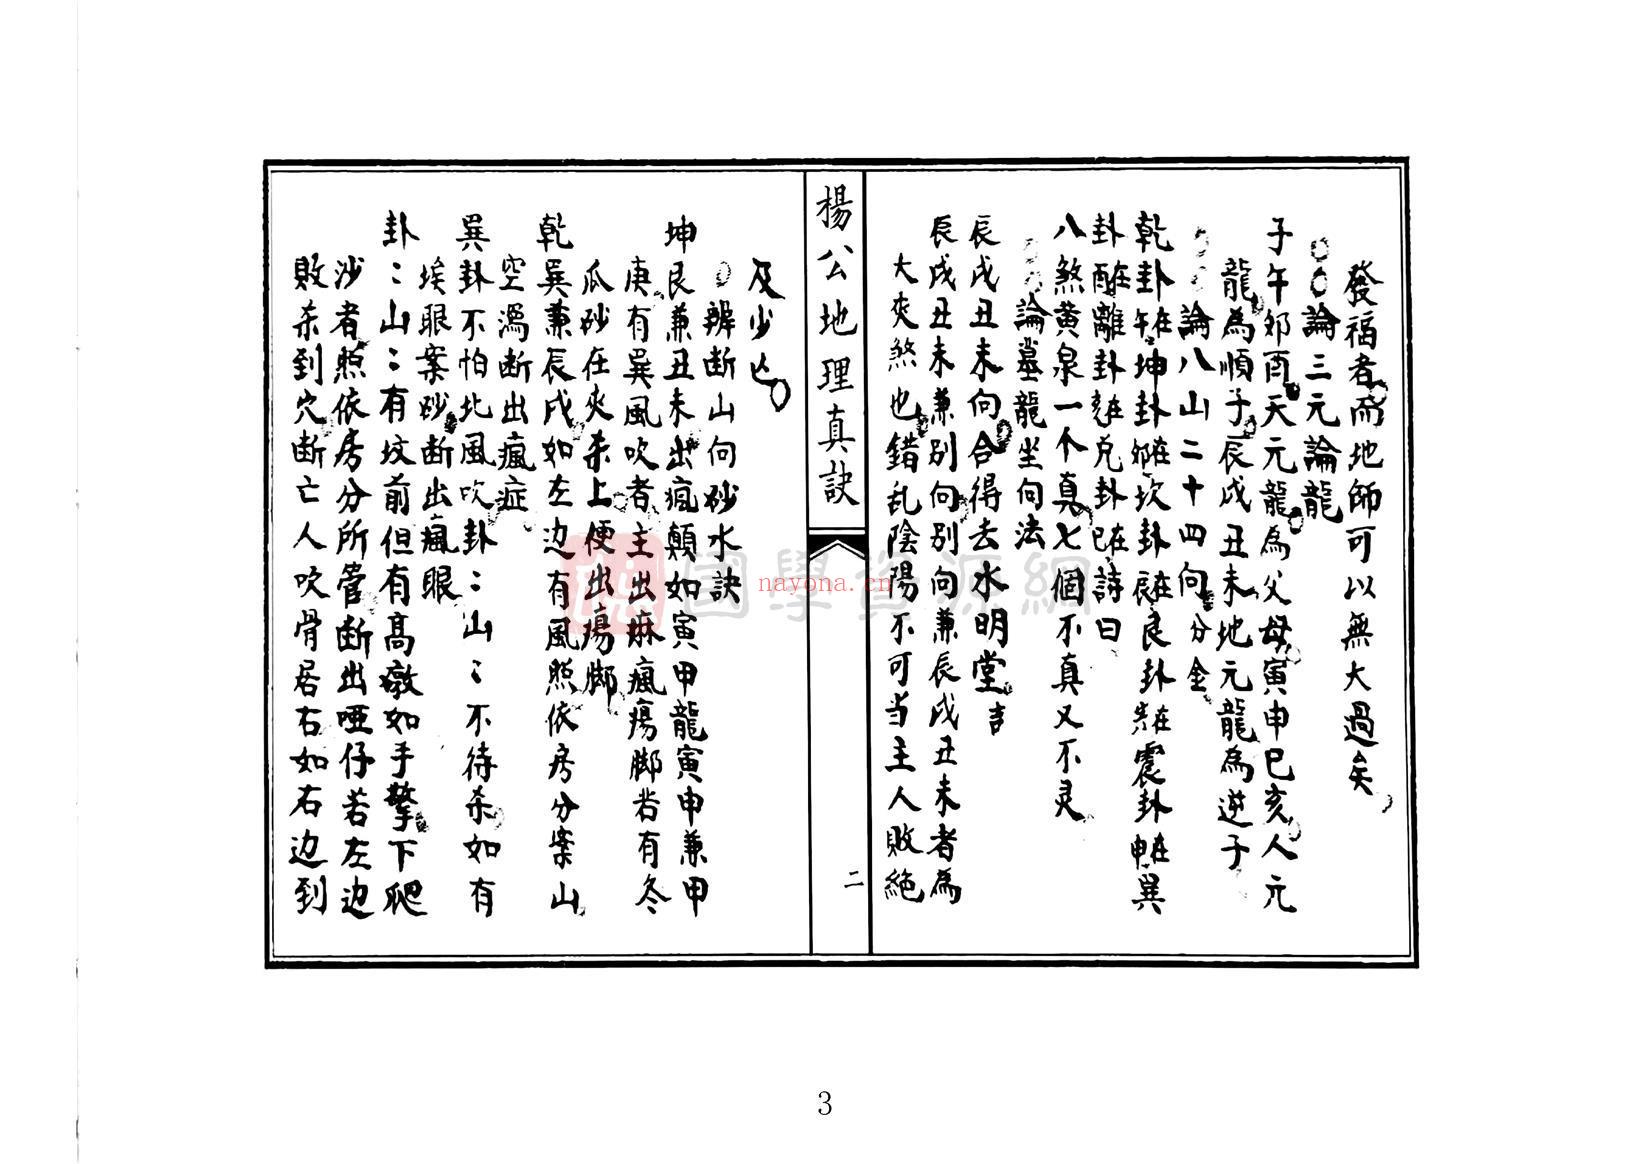 發福者而地師可以無大過矣
論三元論龍
子午卯酉天元龍為父母寅申巳亥人元
龍為順子辰戌丑未地元龍為逆子
論八山二十四向分金
乾卦在午坤卦在卯坎卦在辰艮卦在寅震卦在申巽
卦在酉離卦在亥兌卦在巳詩曰
八煞黄泉一个不真七個不真又不灵
論墓龍坐向法
辰戌丑未向合得去水明堂吉
辰戌丑未兼别向别向兼辰戌丑未者為
大夾煞也錯乱陰陽不可当主人敗絶
楊公地理真訣
二
及少亡
辨断山向砂水訣
坤艮兼丑未出瘋顛如寅甲龍寅申兼甲
庚有巽風吹者主出麻瘋瘍脚若有冬
瓜砂在夾杀上便出瘍脚
乾巽兼辰戌如左边有風照依房分案山
空溤断出瘋症
巽卦不怕北風吹卦:山:不待杀如有
埃眼案砂断出瘋眼
卦:山:有坟前但有高墩如手擎下爬
沙者照依房分所管断出啞仔若左边
敗杀到穴断亡人吹骨居右如右边到
國學資源網
nayona.cn
3